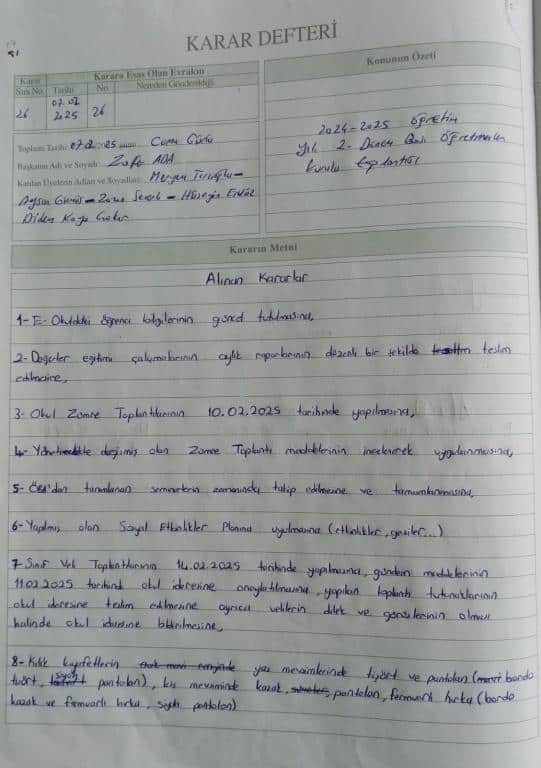 KARAR DEFTERİ
Karar
Sıra No
Karara Esas Olan Evrakın
Tarihi
No.
Nereden Gönderildiği
26
07.02
2025
26
Konunun Özeti
2024-2025 öğretim
Yılı 2. Dönem Başı Öğretmenler
Kurulu toplantısı
Toplantı Tarihi: 07.02.25 Cuma Günü
Başkanın Adı ve Soyadı: Zafer ADA
Katılan Üyelerin Adları ve Soyadları: Meryem
Aysun Güneş - - Hüseyin
Didem Kaya
Kararın Metni
Alınan Kararlar
1- E-Okuldaki öğrenci bilgilerinin güncel tutulmasına,
2- Değerler eğitimi çalışmalarının aylık raporlarının düzenli bir şekilde teslim
edilmesine,
3- Okul Zümre Toplantılarının 10.02.2025 tarihinde yapılmasına,
4- Yönetmelikte değişmiş olan Zümre Toplantı maddelerinin incelenerek uygulanmasına,
5- ÖBA'dan tanımlanan seminerlerin zamanında takip edilmesine ve tamamlanmasına,
6- Yapılmış olan Sosyal Etkinlikler Planına uyulmasına (etkinlikler, geziler...)
7- Sınıf Veli Toplantılarının 14.02.2025 tarihinde yapılmasına, gündem maddelerinin
11.02.2025 tarihinde okul idaresine onaylatılmasına, yapılan toplantı tutanaklarının
okul idaresine teslim edilmesine ayrıca velilerin dilek ve görüşlerinin olması
halinde okul idaresine bildirilmesine,
8- Kılık kıyafetlerin yaz mevsimlerinde tişört ve pantolon (bordo
tişört, siyah pantolon), kış mevsiminde kazak, pantolon, fermuarlı hırka (bordo
kazak ve fermuarlı hırka, siyah pantolon)